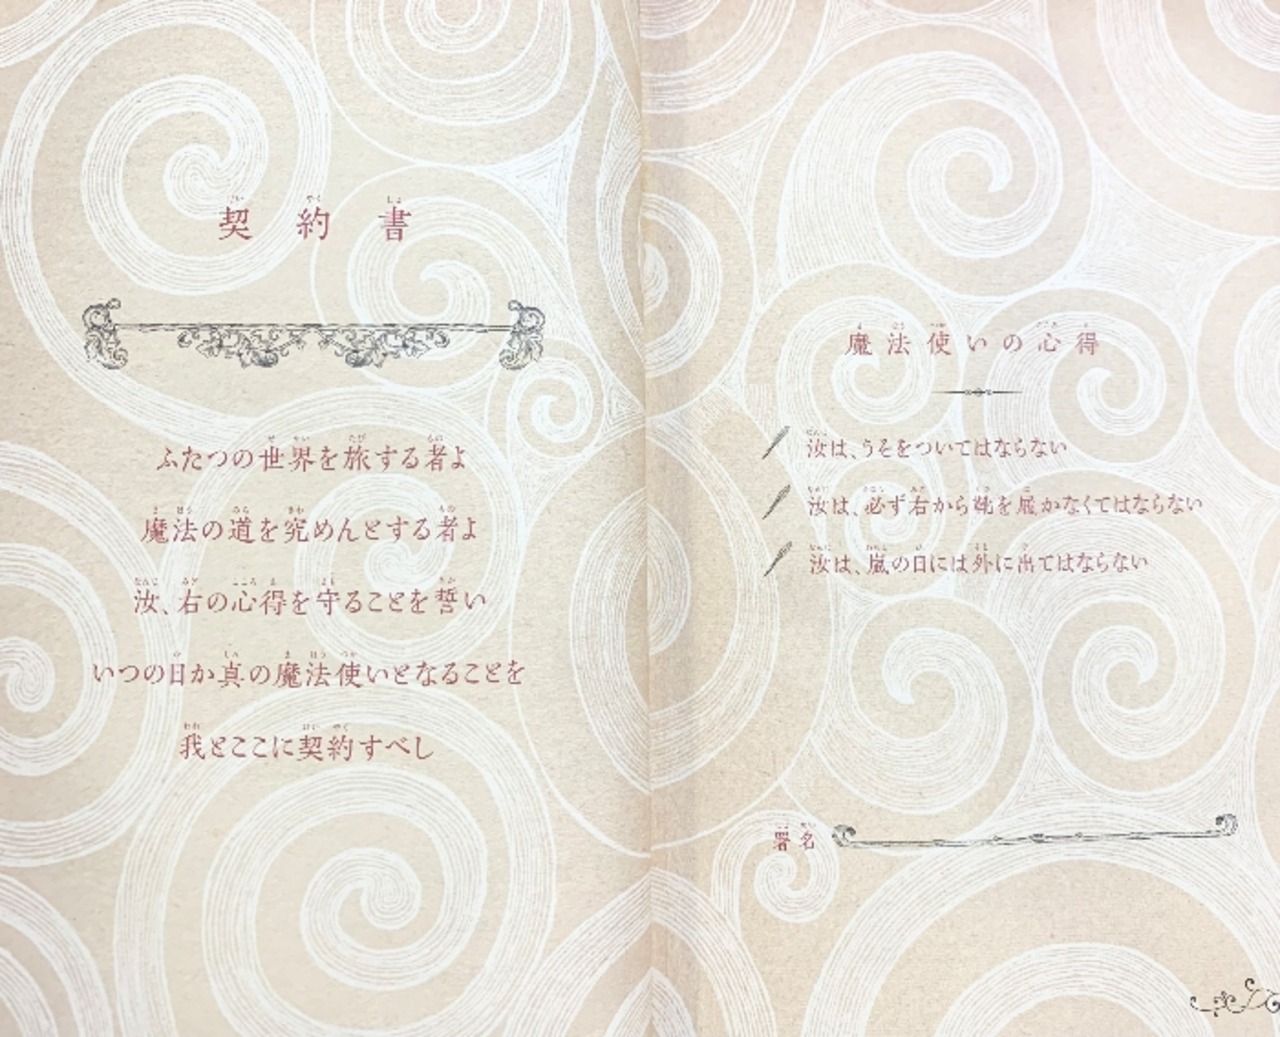 契約書
ふたつの世界を旅する者よ
魔法の道を究めんとする者よ
汝、右の心得を守ることを誓い
いつの日か真の魔法使いとなることを
我とここに契約すべし
魔法使いの心得
汝は、うそをついてはならない
汝は、必ず右から靴を履かなくてはならない
汝は、嵐の日には外に出てはならない
署名